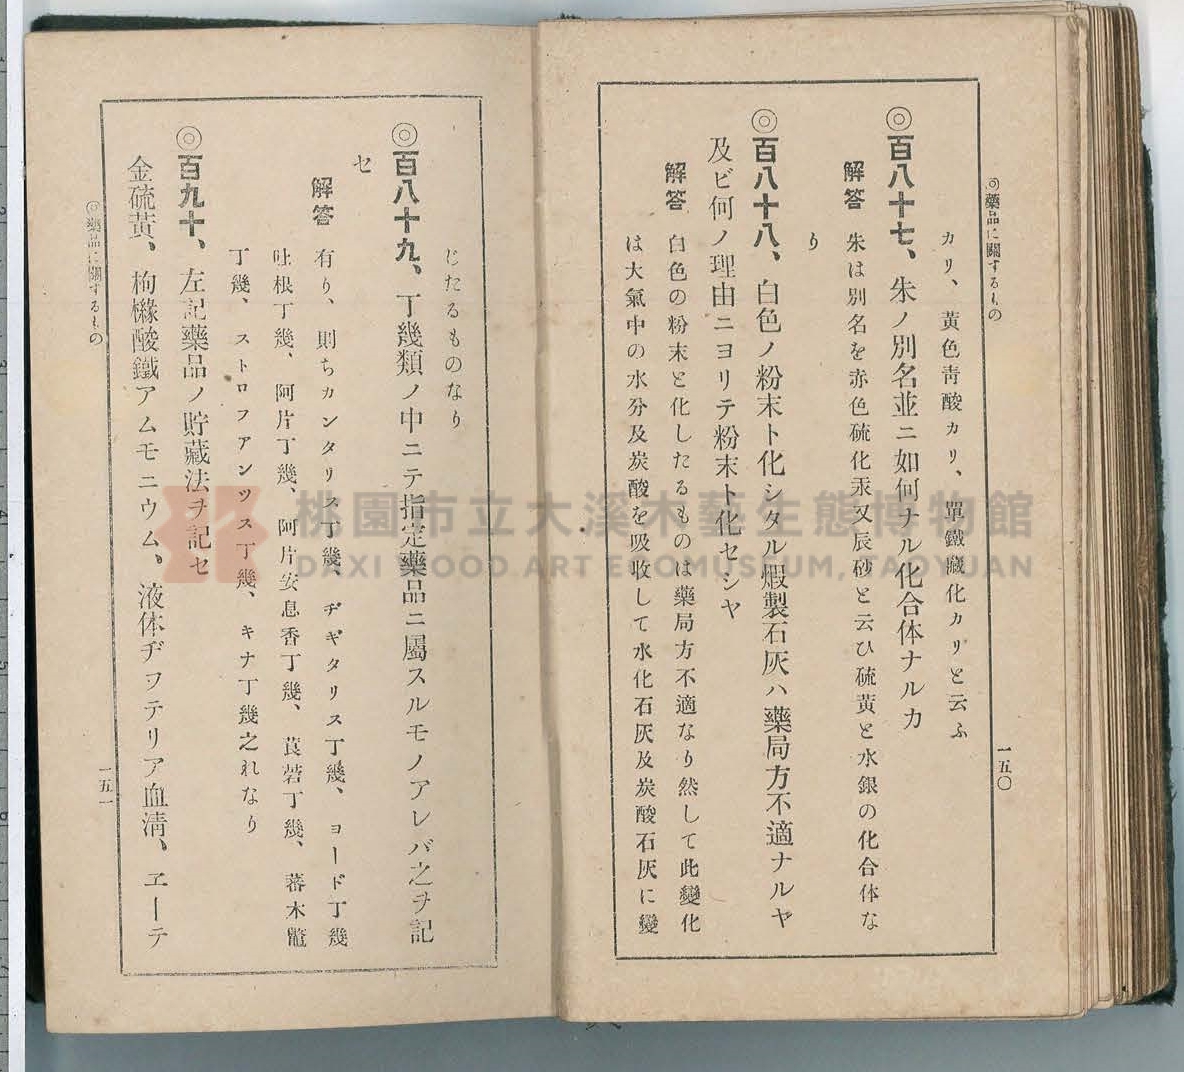 ◎藥品に關するもの
一五〇
カリ、黃色靑酸カリ、單鐵藏化カリと云ふ
◎百八十七、朱ノ別名並ニ如何ナル化合体ナルカ
解答 朱は別名を赤色硫化汞又辰砂と云ひ硫黃と水銀の化合体な
り
◎百八十八、白色ノ粉末ト化シタル煆製石灰ハ藥局方不適ナルヤ
及ビ何ノ理由ニヨリテ粉末ト化セシヤ
解答 白色の粉末と化したるものは藥局方不適なり然して此變化
は大氣中の水分及炭酸を吸收して水化石灰及炭酸石灰に變
じたるものなり
◎百八十九、丁幾類ノ中ニテ指定藥品ニ屬スルモノアレバ之ヲ記
セ
解答 有り、則ちカンタリス丁幾、ヂギタリス丁幾、ヨード丁幾
吐根丁幾、阿片丁幾、阿片安息香丁幾、莨菪丁幾、蕃木鼈
丁幾、ストロフアンツス丁幾、キナ丁幾之れなり
◎百九十、左記藥品ノ貯藏法ヲ記セ
金硫黃、枸櫞酸鐵アムモニウム、液体ヂフテリア血淸、ヱーテ
◎藥品に關するもの
一五一
桃園市立大溪木藝生態博物館
DAXI WOOD ART ECOMUSEUM, TAOYUAN